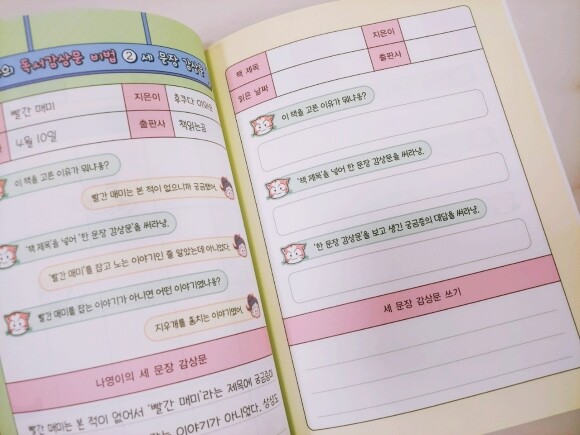 독서감상문 비법 2 세 문장 감상문
빨간 매미
지은이
후쿠다
4월 10일
출판사
책읽는곰
이 책을 고른 이유가 뭐냐옹?
빨간 매미는 본 적이 없으니까 궁금했어.
'책 제목'을 넣어 '한 문장 감상문'을 써라냥.
'빨간 매미'를 잡고 노는 이야기인 줄 알았는데 아니었다.
빨간 매미를 잡는 이야기가 아니면 어떤 이야기였냐옹?
지우개를 훔치는 이야기였어.
나영이의 세 문장 감상문
빨간 매미는 본 적이 없어서 '빨간 매미'라는 제목에 궁금증이
잡는 이야기가 아니었다. 상상도
책 제목
지은이
읽은 날짜
출판사
이 책을 고른 이유가 뭐냐옹?
'책 제목'을 넣어 한 문장 감상문을 써라냥.
'한 문장 감상문'을 보고 생긴 궁금증의 대답을 써라냥.
세 문장 감상문 쓰기